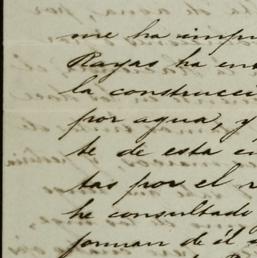 me ha impu
Rayas ha en
la construcci
por agua, y
te de esta ci
tas por el r
he consultado
forman de él s